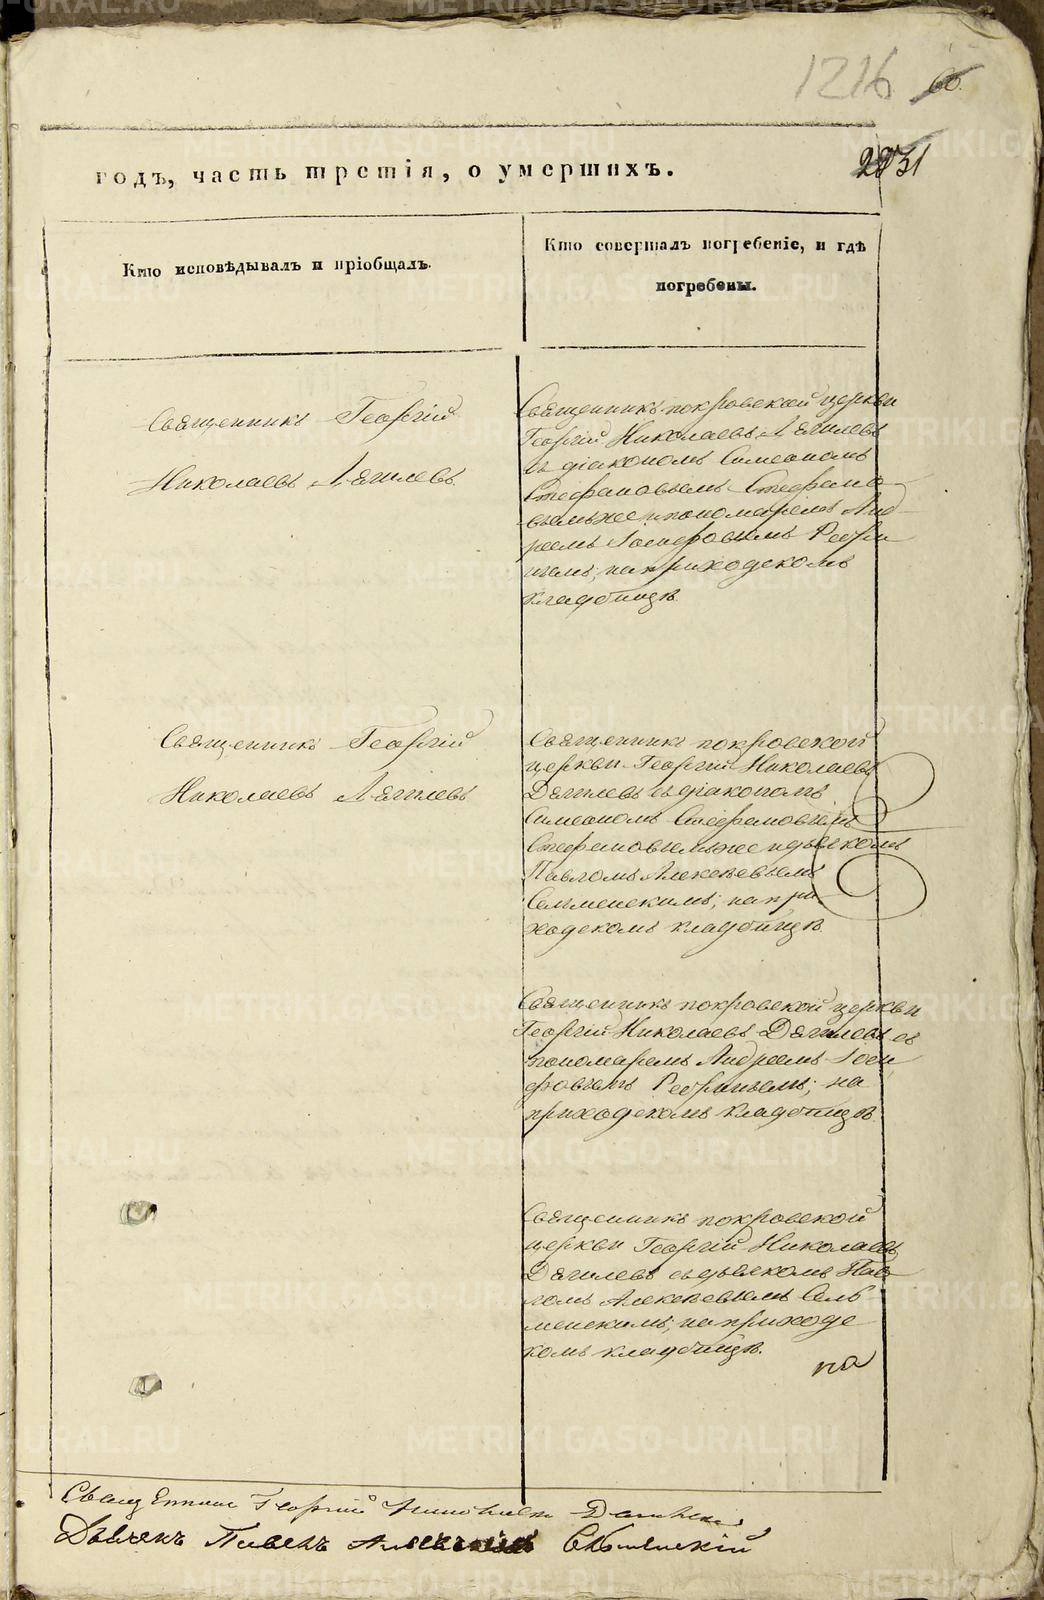 1216
66.
2831
годъ, часть третія, о умершихъ.
Кто исповѣдывалъ и пріобщалъ.
Кто совершалъ погребеніе, и гдѣ
погребены.
Священникъ Георгій
Николаевъ Дягилевъ
Священникъ покровской церкви
Георгій Николаевъ Дягилевъ
съ діакономъ Симеономъ
Стефановымъ Стефано
вымъ же и пономаремъ Анд-
реемъ Іосифовымъ Ребри
нымъ; на приходскомъ
кладбищѣ.
Священникъ Георгій
Николаевъ Дягилевъ
Священникъ покровской
церкви Георгій Николаевъ
Дягилевъ съ діакономъ
Симеономъ Стефановымъ
Стефановымъ же и дьячкомъ
Павломъ Алексѣевымъ
Сельменскимъ; на при
ходскомъ кладбищѣ.
Священникъ покровской церкви
Георгій Николаевъ Дягилевъ съ
пономаремъ Андреемъ Іоси
фовымъ Ребринымъ; на
приходскомъ кладбищѣ.
Священникъ покровской
церкви Георгій Николаевъ
Дягилевъ съ дьячкомъ Пав
ломъ Алексѣевымъ Сель
менскимъ; на приходс
комъ кладбищѣ.
на
Священникъ Георгій Николаевъ Дягилевъ
Дьячекъ Павелъ
METRIKI.GASO-URAL.RU